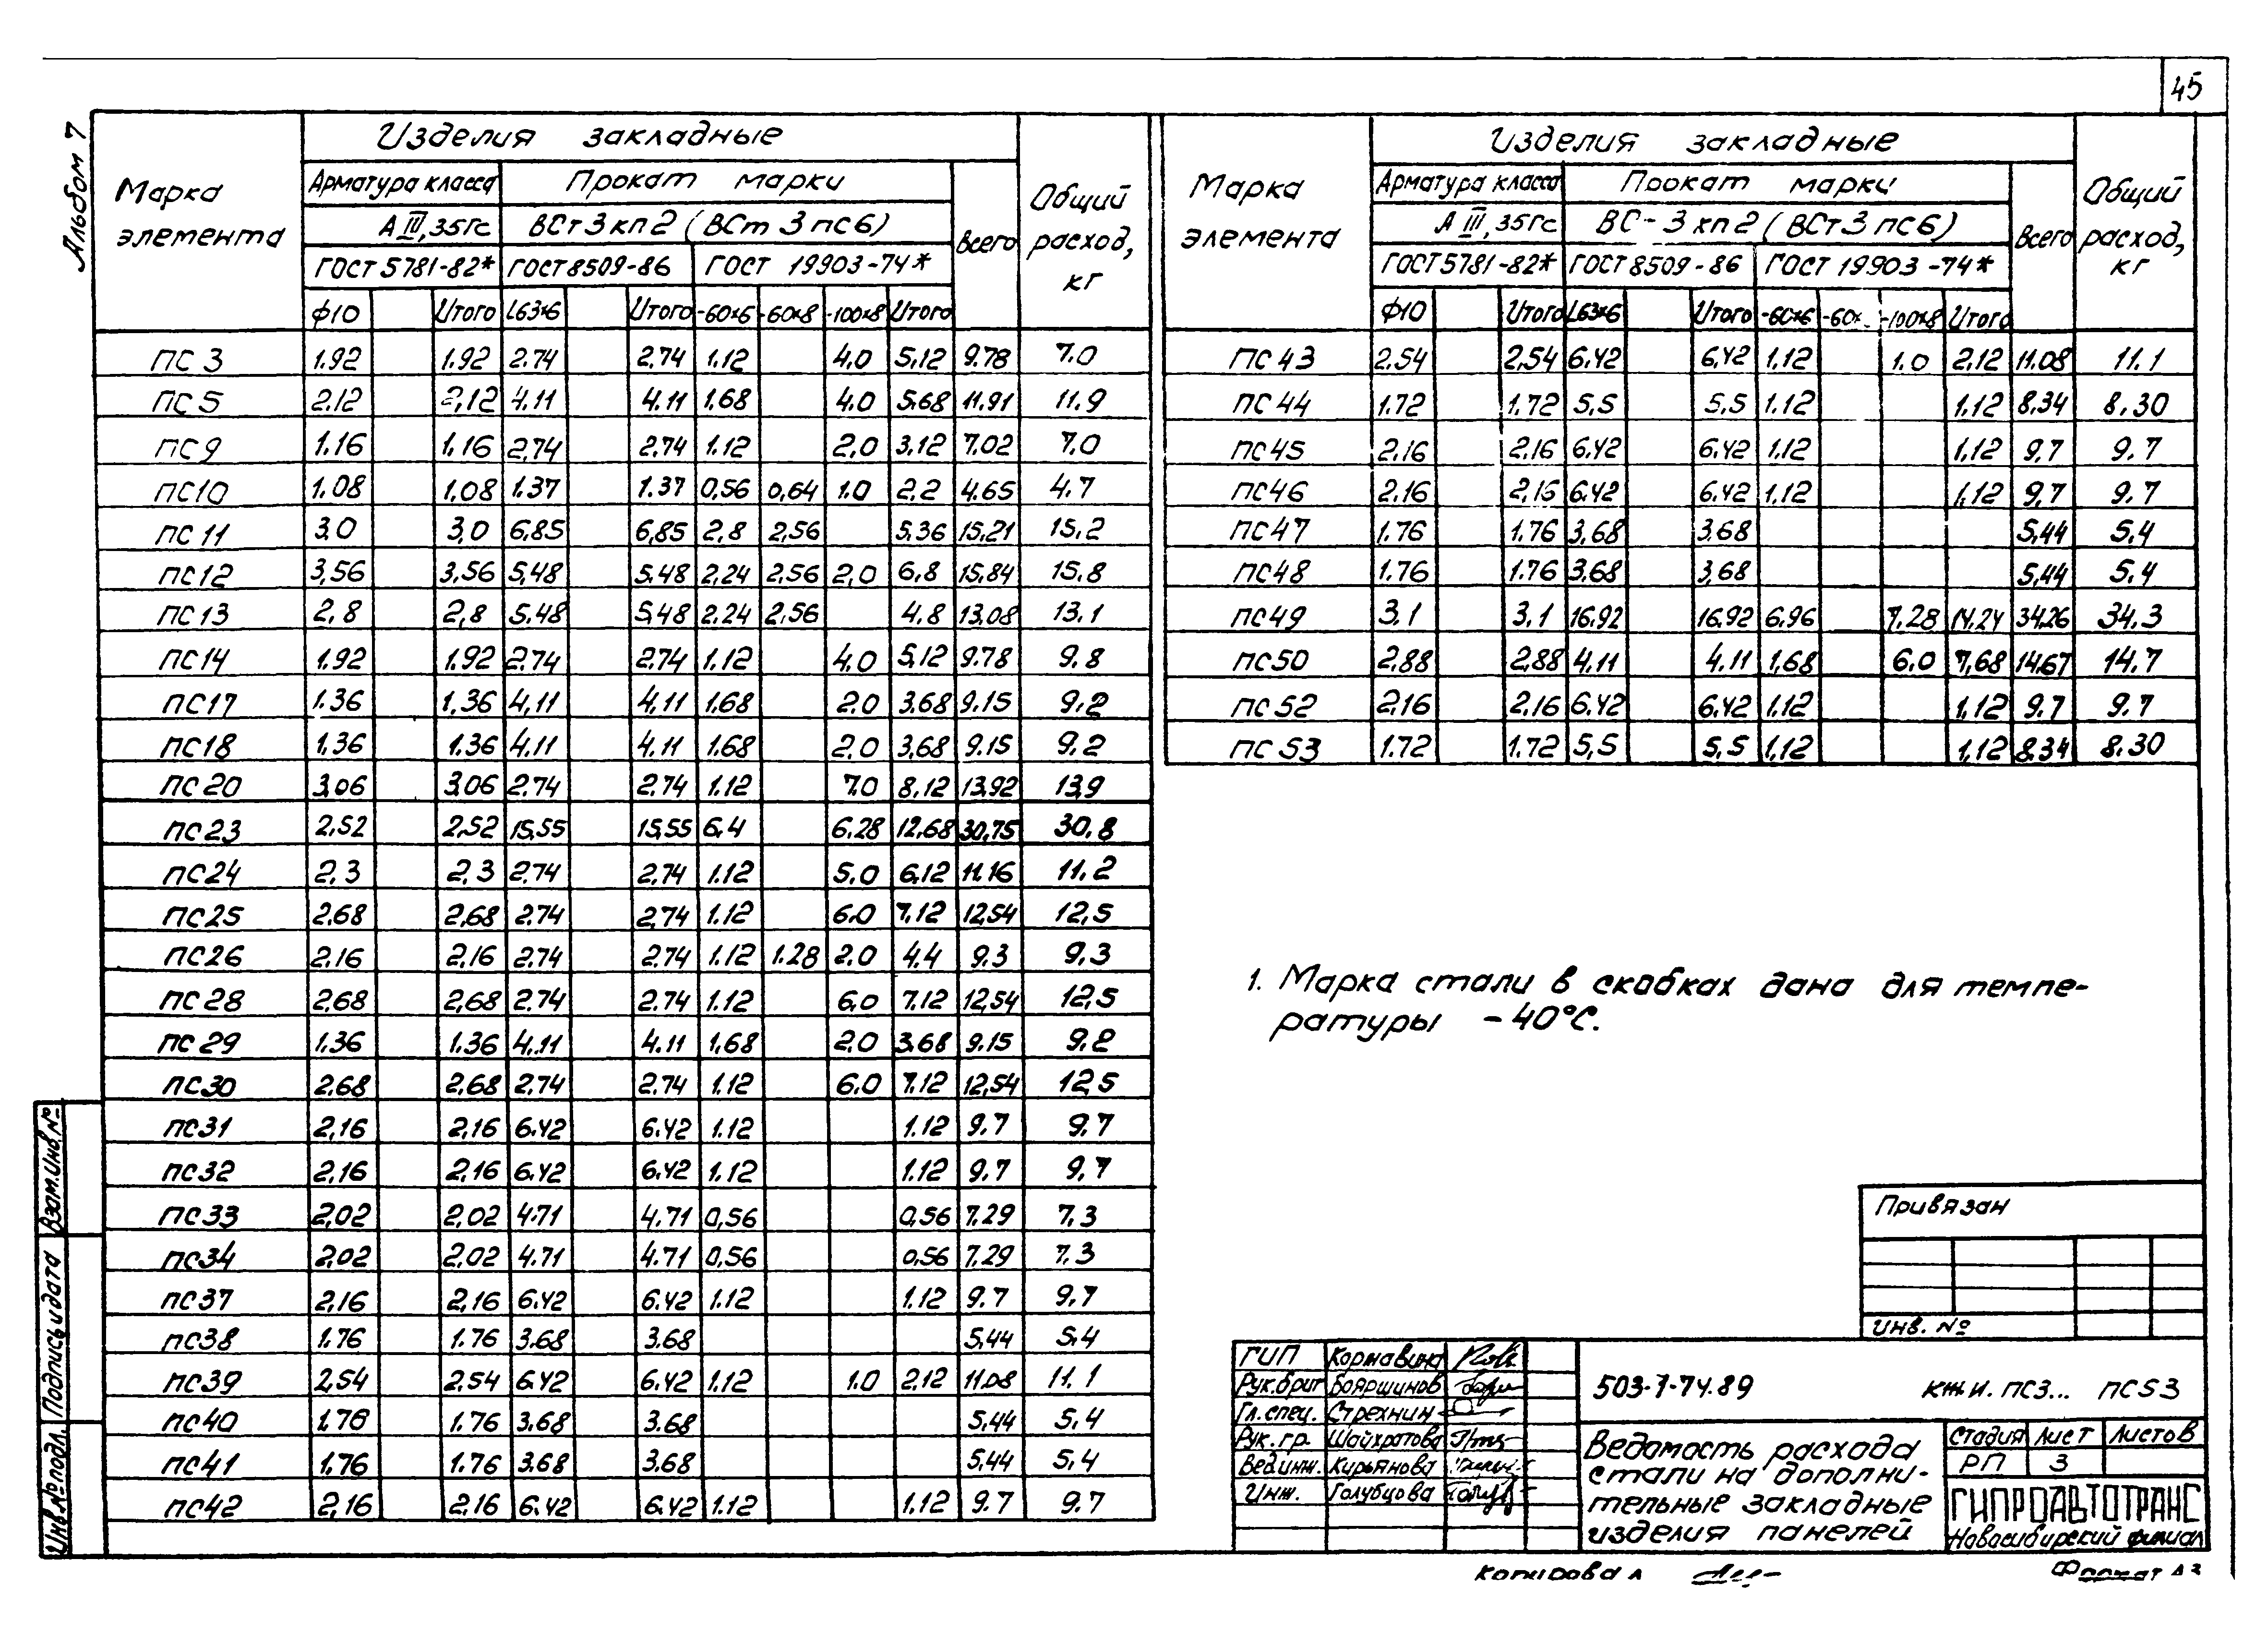 45
Альбом 7
Марка элемента
Изделия закладные
Общий расход, кг
Арматура класса
Прокат марки
Всего
А III, 35Гс
ВСт3кп2 (ВСт3пс6)
ГОСТ 5781-82* ГОСТ 8509-86 ГОСТ 19903-74*
Ф10 Итого L63×6 Итого -60×6 -60×8 -100×8 Итого
ПС 3 1.92 1.92 2.74 2.74 1.12 4.0 5.12 9.78 7.0
ПС 5 2.12 2,12 4.11 4.11 1.68 4.0 5.68 11.91 11.9
ПС 9 1.16 1.16 2.74 2.74 1.12 2.0 3.12 7.02 7.0
ПС10 1.08 1.08 1.37 1.37 0,56 0,64 1.0 2.2 4.65 4.7
ПС 11 3,0 3,0 6,85 6,85 2,8 2,56 5,36 15,21 15,2
ПС12 3,56 3,56 5,48 5,48 2,24 2,56 2,0 6,8 15,84 15.8
ПС13 2,8 2,8 5,48 5,48 2,24 2,56 4,8 13,08 13,1
ПС14 1.92 1.92 2.74 2.74 1.12 4.0 5,12 9.78 9.8
ПС17 1.36 1.36 4,11 4,11 1,68 2.0 3,68 9.15 9.2
ПС18 1.36 1.36 4.11 4.11 1.68 2.0 3,68 9.15 9.2
ПС20 3,06 3,06 2.74 2.74 1.12 7.0 8,12 13,92 13,9
ПС23 2,52 2,52 15,55 15,55 6,4 6,28 12,68 30,75 30,8
ПС24 2,3 2,3 2.74 2,74 1.12 5.0 6,12 11.16 11.2
ПС25 2.68 2,68 2.74 2,74 1.12 6.0 7.12 12,54 12,5
ПС26 2.16 2.16 2.74 2.74 1.12 1.28 2.0 4.4 9.3 9.3
ПС28 2.68 2,68 2.74 2.74 1.12 6,0 7.12 12,54 12,5
ПС29 1.36 1.36 4.11 4.11 1,68 2.0 3.68 9.15 9.2
ПС30 2,68 2,68 2.74 2.74 1.12 6.0 7.12 12,54 12,5
ПС31 2,16 2,16 6.42 6.42 1.12 1.12 9.7 9.7
ПС32 2,16 2,16 6.42 6.42 1.12 1.12 9.7 9.7
ПС33 2,02 2,02 4.71 4.71 0,56 0,56 7.29 7.3
ПС34 2,02 2,02 4.71 4.71 0,56 0,56 7.29 7.3
ПС37 2,16 2,16 6.42 6.42 1.12 1.12 9.7 9.7
ПС38 1.76 1.76 3.68 3.68 5,44 5,4
ПС39 2,54 2,54 6.42 6.42 1.12 1.0 2,12 11.08 11.1
ПС40 1.76 1.76 3.68 3.68 5,44 5,4
ПС41 1.76 1.76 3.68 3.68 5,44 5,4
ПС42 2,16 2,16 6.42 6.42 1.12 1.12 9.7 9.7
Марка элемента
Изделия закладные
Общий расход, кг
Арматура класса
Прокат марки
Всего
А III, 35Гс
ВС-3кп2 (ВСт3пс6)
ГОСТ 5781-82* ГОСТ 8509-86 ГОСТ 19903-74*
Ф10 Итого L63×6 Итого -60×6 -60× -100×8 Итого
ПС 43 2.54 2,54 6.42 6,42 1.12 1.0 2.12 11.08 11.1
ПС 44 1.72 1.72 5,5 5,5 1.12 1.12 8.34 8.30
ПС45 2.16 2.16 6.42 6.42 1.12 1.12 9.7 9.7
ПС46 2.16 2,16 6.42 6.42 1.12 1.12 9.7 9.7
ПС47 1.76 1.76 3,68 3.68 5,44 5.4
ПС48 1.76 1.76 3,68 3,68 5,44 5.4
ПС49 3,1 3,1 16,92 16,92 6,96 7.28 14.24 34,26 34.3
ПС50 2,88 2,88 4,11 4.11 1,68 6.0 7,68 14,67 14.7
ПС 52 2.16 2.16 6.42 6.42 1.12 1.12 9.7 9.7
ПС 53 1.72 1.72 5,5 5,5 1.12 1,12 8.34 8.30
1. Марка стали в скобках дана для темпе-
ратуры -40°С.
Привязан
Инв. №
ГИП Кормавина
Рук.бриг Бояршинов
Гл.спец. Стрехнин
Рук.гр. Шайхратова
Вед.инж. Кирьянова
Инж. Голубцова
503-7-74.89 КЖИ. ПС3... ПС53
Ведомость расхода
стали на дополни-
тельные закладные
изделия панелей
Стадия Лист Листов
РП 3
ГИПРОАВТОТРАНС
Новосибирский филиал
Копировал
Формат А3
Взам.инв.№
Подпись и дата
Инв.№подл.